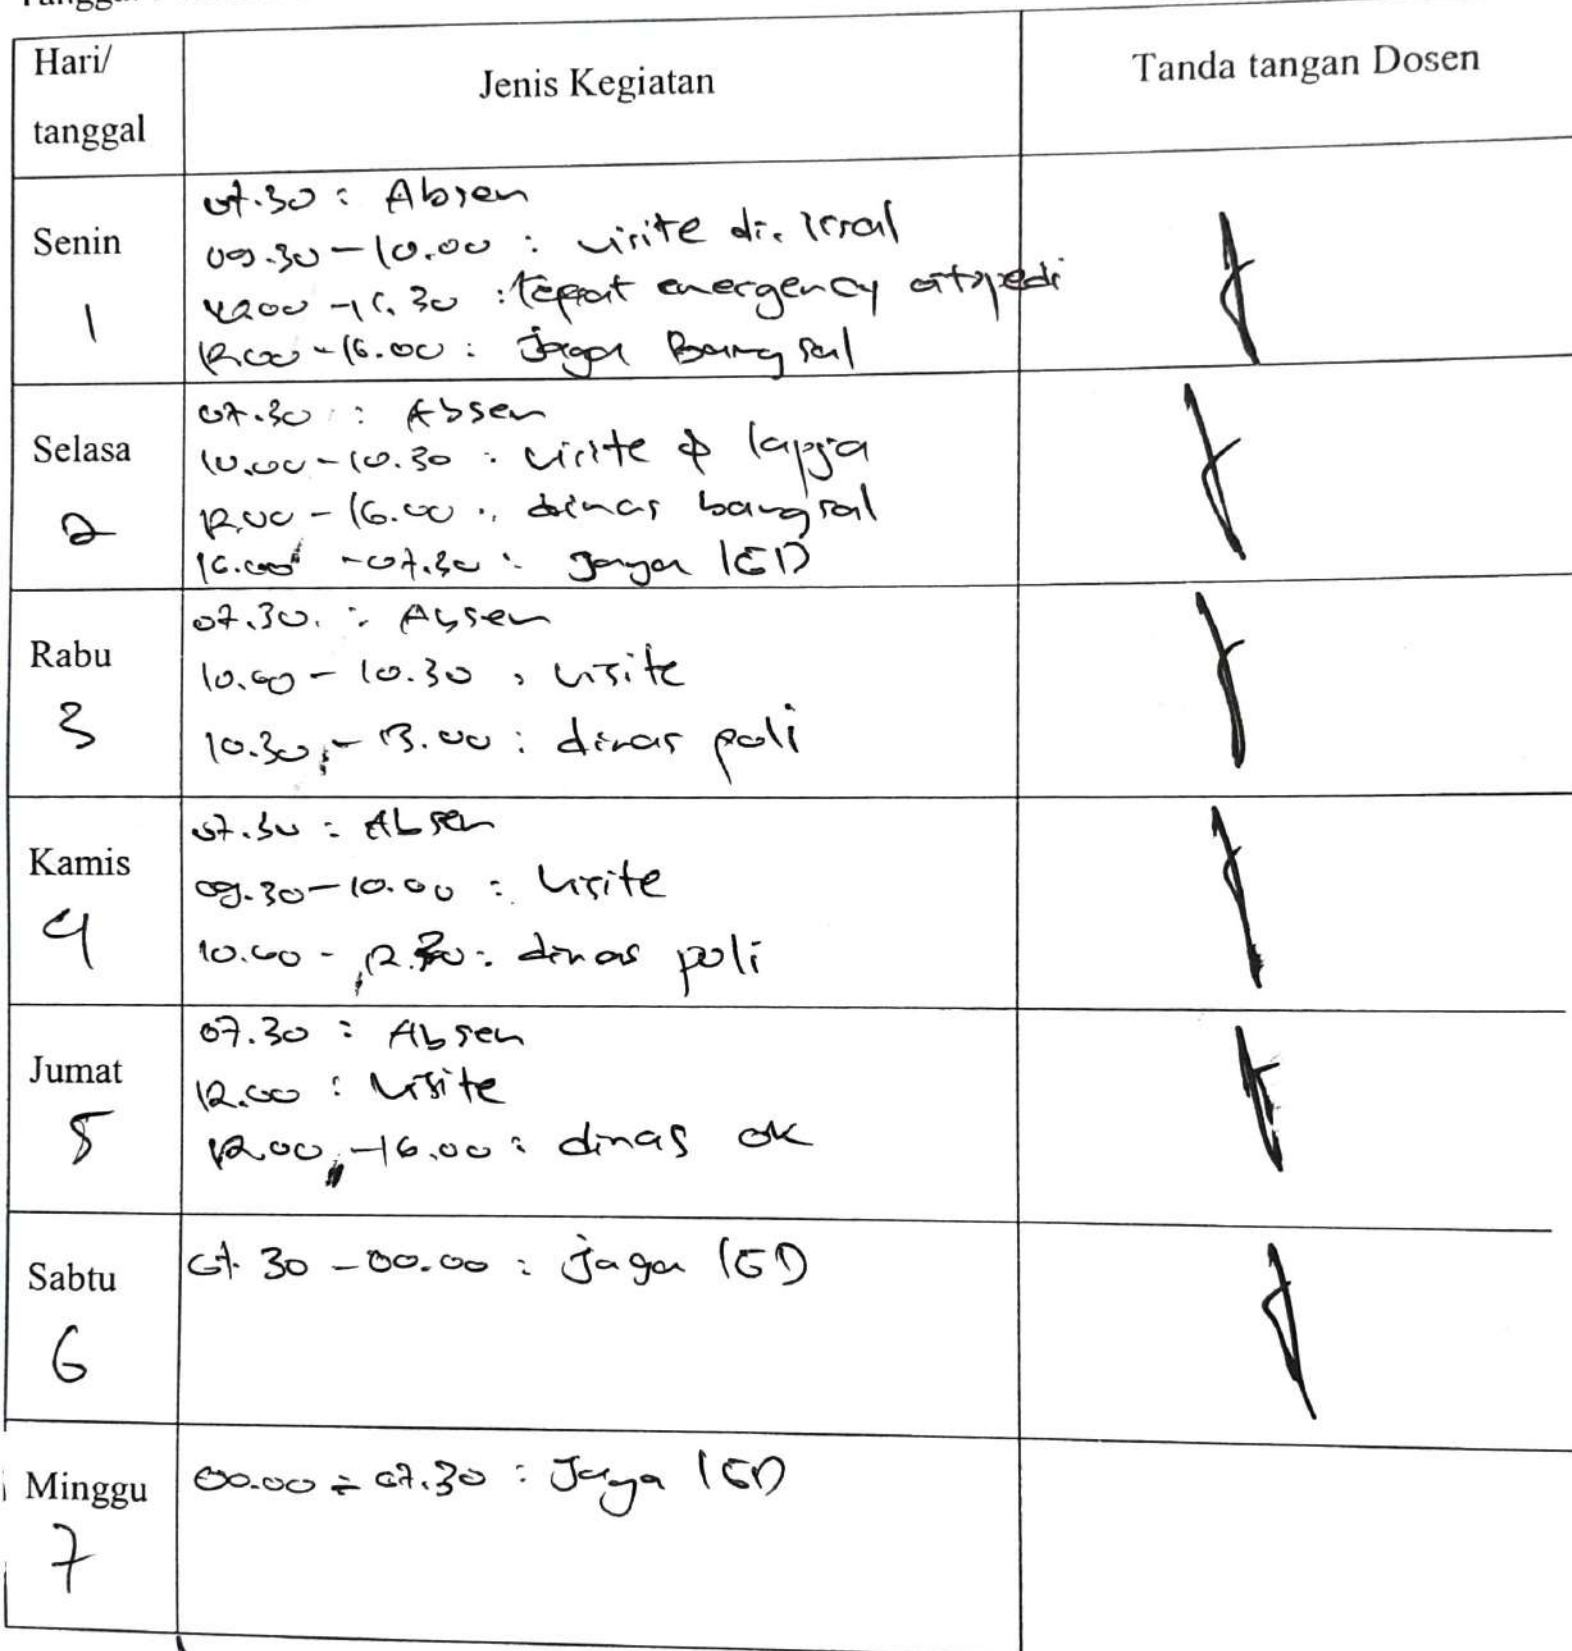 Hari/
tanggal
Jenis Kegiatan
Tanda tangan Dosen
Senin
1
07.30 : Absen
09.30 - 10.00 : visite dr.
- 11.30 : emergency
12.00 - 16.00 : jaga Bangsal
Selasa
2
07.30 : Absen
10.00 - 10.30 : visite & lapja
12.00 - 16.00 : dinas bangsal
16.00 - 07.30 : Jaga IGD
Rabu
3
07.30 : Absen
10.00 - 10.30 : visite
10.30 - 13.00 : dinas poli
Kamis
4
07.30 : Absen
09.30 - 10.00 : visite
10.00 - 12.30 : dinas poli
Jumat
5
07.30 : Absen
12.00 : visite
12.00 - 16.00 : dinas ok
Sabtu
6
07.30 - 00.00 : jaga IGD
Minggu
7
00.00 - 07.30 : Jaga IGD